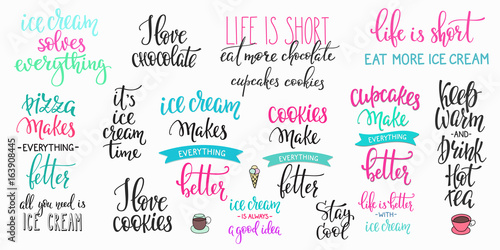 ice cream
solves
everything
I love
chocolate
LIFE IS SHORT
eat more chocolate
cupcakes cookies
life is short
EAT MORE ICE CREAM
pizza
makes
EVERYTHING
better
it's
ice
cream
time
ice cream
makes
EVERYTHING
better
cookies
make
EVERYTHING
better
cupcakes
make
EVERYTHING
better
keep
warm
AND
Drink
Hot
tea
all you need is
ICE CREAM
I love
cookies
ice cream
IS ALWAYS
a good idea
Stay
cool
life is better
WITH
ice cream
Adobe Stock | #163908445